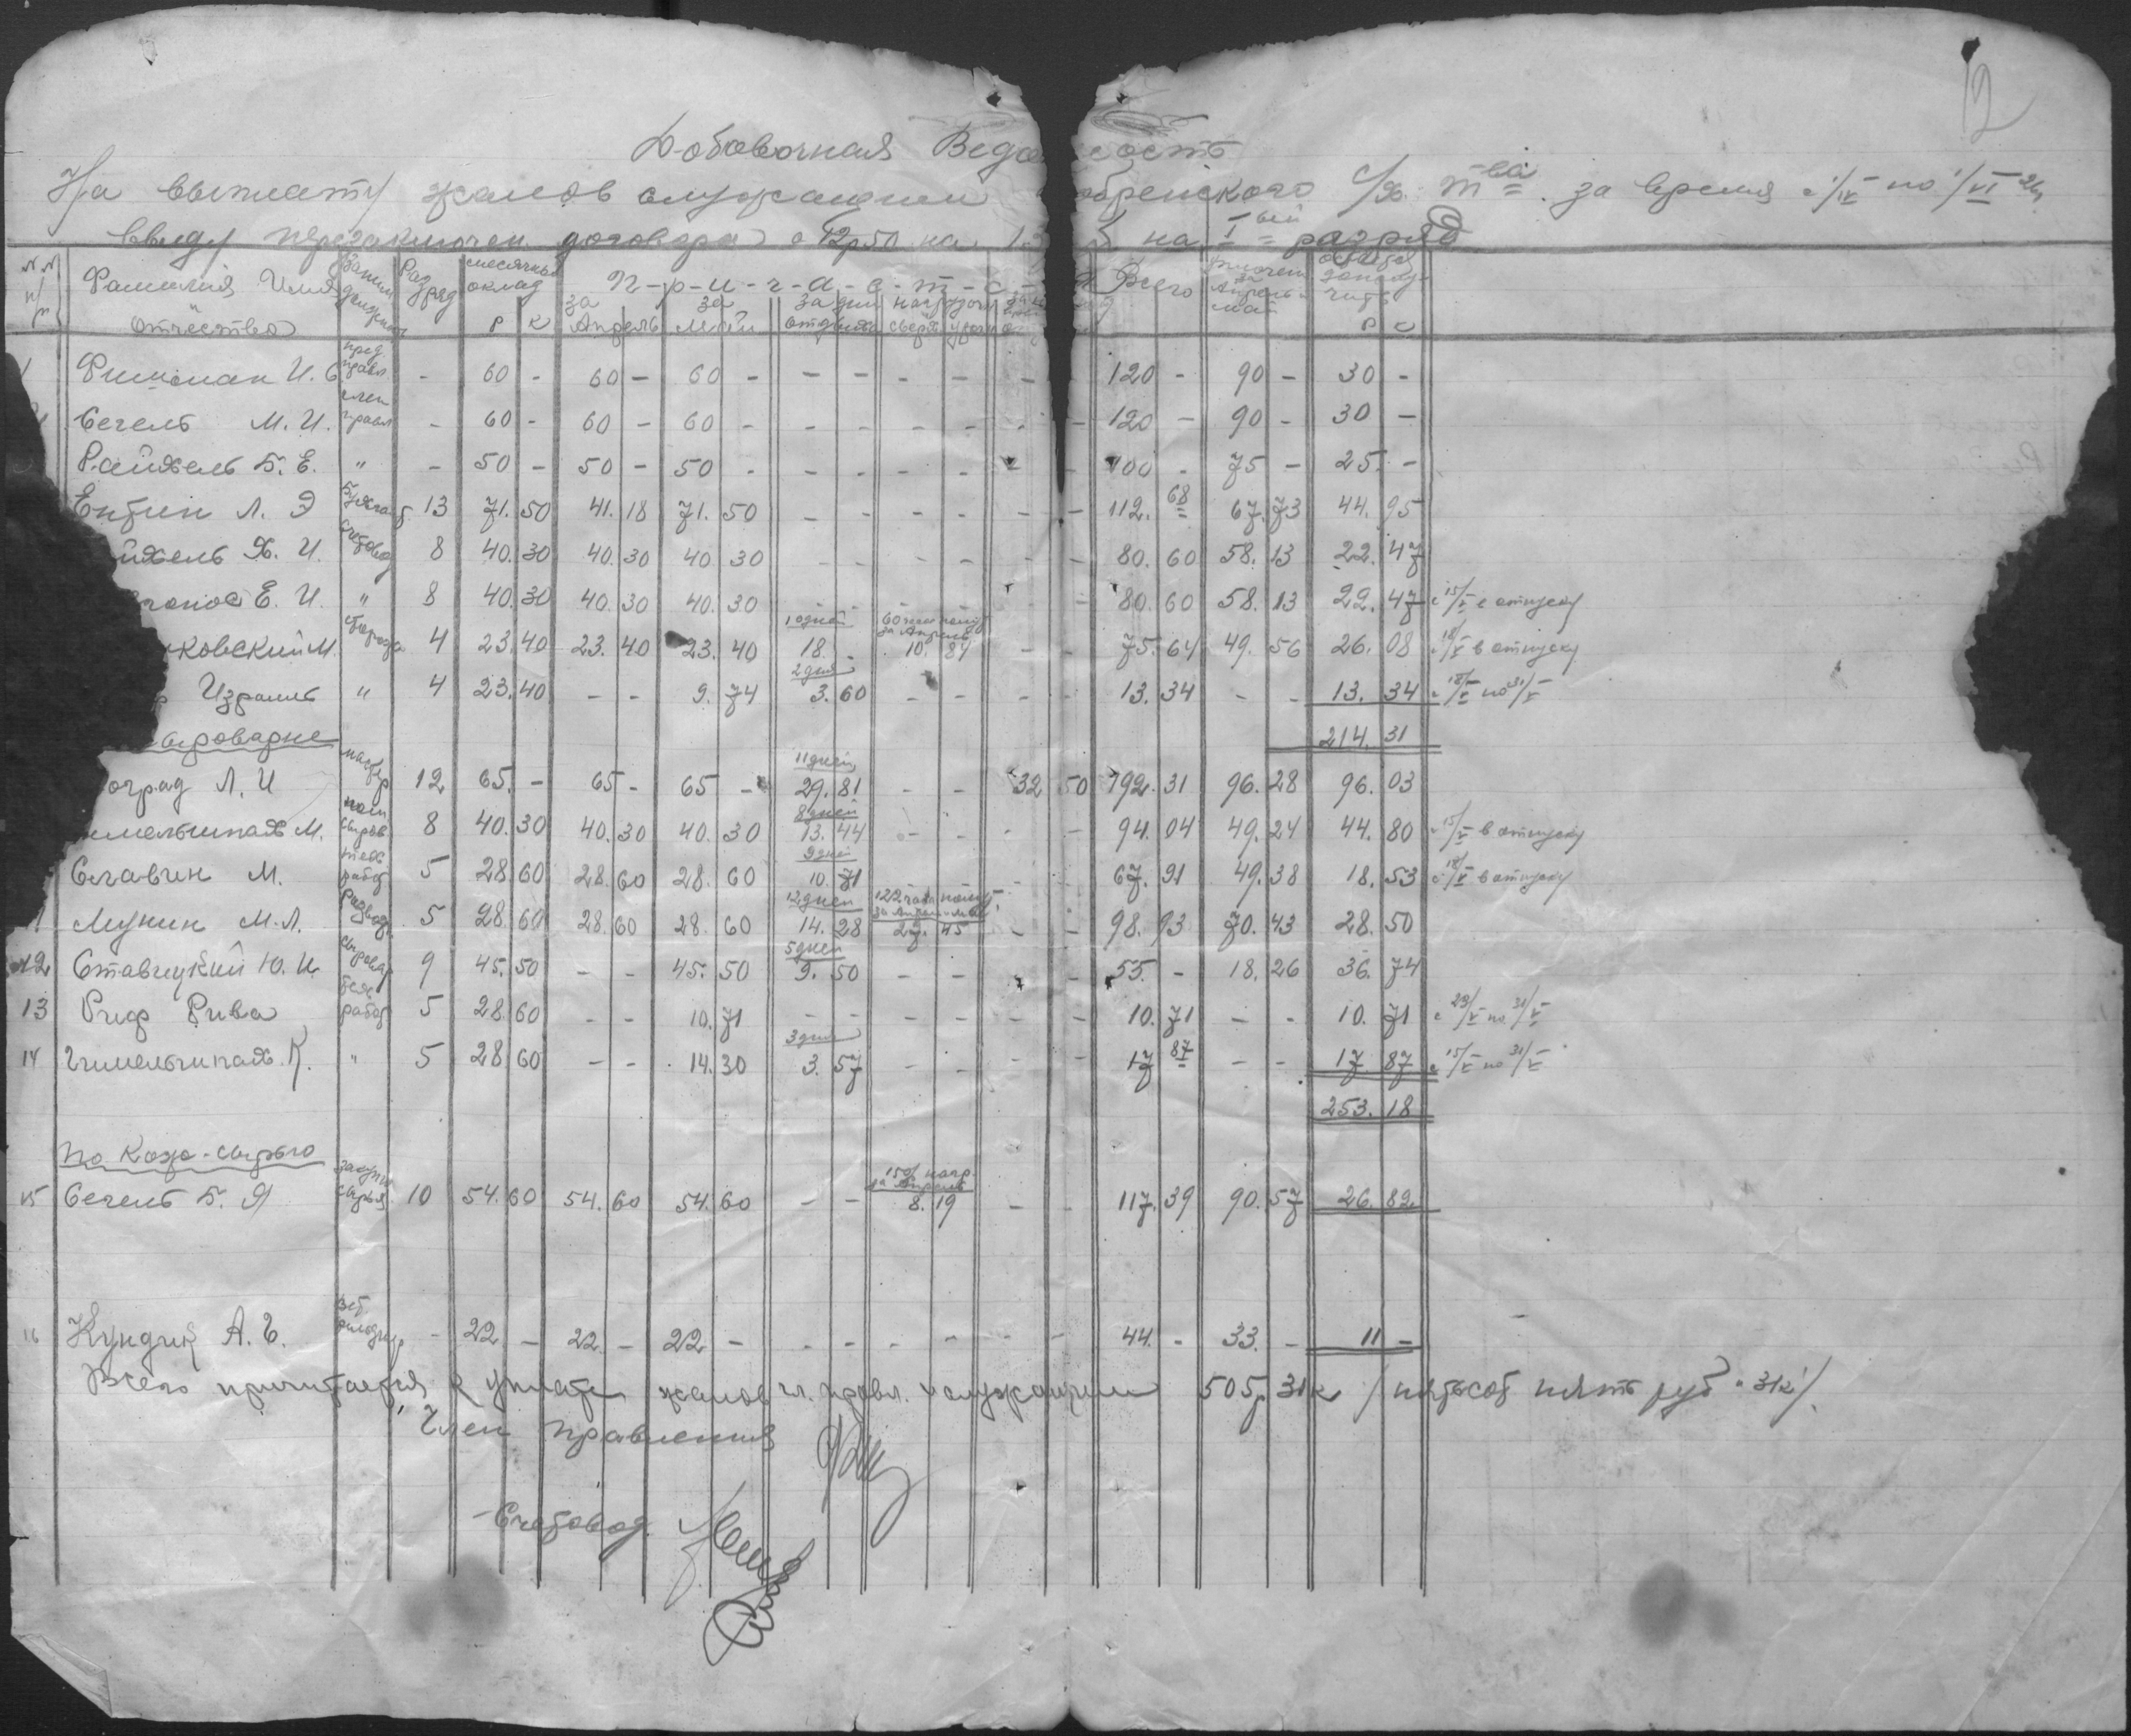 12
Добавочная Ведо ость
На выплату жалов служащим обренского с/х. т-ва за время с 1/IV по 1/VI 26
ввиду перезаключен. договора с 12р50 на 13 на I ый разряд
№№ п/п Фамилия Имя и отчество Заним. должность Разряд месячный оклад Р К П-р-и-ч-и-т-а-е-т-с-я за Апрель за Май за дни отдыха нагрузочн сверхурочн Всего Получен за Апрель и май Р К
Фишман И. С. пред. правл - 60 - 60 - 60 - - - - - - 120 - 90 - 30 -
Сегель М. И. член правл - 60 - 60 - 60 - - - - - - - 120 - 90 - 30 -
Райхель Б. Е. " - 50 - 50 - 50 - - - - - - 100 - 75 - 25 -
Ентин Л. Э Бухгал 13 71.50 41.18 71.50 - - - - - - 112.68 67.73 44.95
йхель Х. И. счетовод 8 40.30 40.30 40.30 - - - - - - 80.60 58.13 22.47
Е. И. " 8 40.30 40.30 40.30 - 80.60 58.13 22.47 с 15/V в отпуску
10 дней
ковский М. 4 23.40 23.40 23.40 18. - 10.84 - - 75.64 49.56 26.08 с 18/V в отпуску
2 дня
Израиль " 4 23.40 - - 9.74 3.60 - - - - 13.34 - - 13.34 с 18/V по 31/V
сыроварне 214.31
11 дней
оград Л. И мастер 12 65. - 65 - 65 - 29.81 - - 32 50 192.31 96.28 96.03
8 дней
мельшпах М. пом сыров 8 40.30 40.30 40.30 13.44 - - - - 94.04 49.24 44.80 с 15/V в отпуску
9 дней
Славин М. тех работ 5 28.60 28.60 28.60 10.71 67.91 49.38 18.53 с 18/V в отпуску
12 дней
Мунин М. Л. 5 28.60 28.60 28.60 14.28 27.45 - - 98.93 70.43 28.50
5 дней
12 Ставицкий Ю. И. сыровар 9 45.50 - - 45.50 9.50 - - - - 55. - 18.26 36.74
13 Риф Рива работ 5 28.60 - - 10.71 - - - - - - 10.71 - - 10.71 с 23/V по 31/V
3 дня
14 Гимельшпах. К. " 5 28.60 - - 14.30 3.57 - - - - 17.87 - - 17.87 с 15/V по 31/V
253.18
По Кожо-сырью
15% нагр. за Апрель
15 Сегель Б. Я закупщ сырья 10 54.60 54.60 54.60 - - 8.19 - - 117.39 90.57 26.82
16 Кундик А. Г. - 22. - 22. - 22 - - - - - - - 44. - 33. - 11 -
Всего причитается к уплате жалов чл. правл. и служащим 505р 31к / пятьсот пять руб. 31к/.
Член Правления
Счетовод